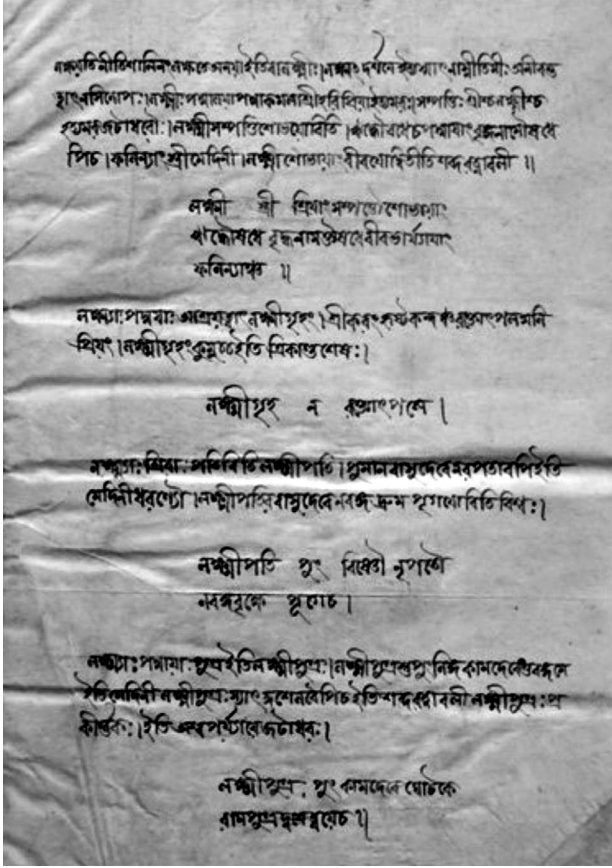 লক্ষয়তি নীতিশালিনং লক্ষতে অনয়া ইতি বা লক্ষ্মীঃ।
লক্ষ্মীঃ পদ্মালয়াপদ্মাকমলাশ্রীহরিপ্রিয়াইত্যমরঃ সম্পত্তিঃ শ্রীশ্চ লক্ষ্মীশ্চ
ইত্যমরজটাধরৌ। লক্ষ্মীসম্পত্তিশোভয়োরিতি।
পিচ। ফলিন্যাং শ্রীমেদিনী। লক্ষ্মী শোভায়াং বীরযোষিতীতি শব্দরত্নাবলী॥
লক্ষ্মী স্ত্রী শ্রিয়াং সম্পত্তৌ শোভায়াং
ঋদ্ধ্যৌষধে বৃদ্ধিনামৌষধে বীরভার্য্যায়াং
ফলিন্যাঞ্চ॥
লক্ষ্ম্যাঃ পদ্মায়াঃ আশ্রয়ত্বাৎ লক্ষ্মীগৃহং।
শ্রিয়ং। লক্ষ্মীগৃহং ইতি ত্রিকাণ্ডশেষঃ।
লক্ষ্মীগৃহ ন রক্তোৎপলে।
লক্ষ্ম্যাঃ শ্রিয়াঃ পতিরিতি লক্ষ্মীপতি। পুমান বাসুদেবে নরপতাবপি ইতি
মেদিনীধরণ্যৌ। লক্ষ্মীপতির্বাসুদেবে লবঙ্গদ্রুম পূগয়োরিতি বিশ্বঃ।
লক্ষ্মীপতি পুং বিষ্ণৌ নৃপতৌ
লবঙ্গবৃক্ষে পূগেচ।
লক্ষ্ম্যাঃ পদ্মায়াঃ পুত্র ইতি লক্ষ্মীপুত্রঃ। লক্ষ্মীপুত্রস্তু পুংলিঙ্গ কামদেবে তুরঙ্গমে
ইতি মেদিনী লক্ষ্মীপুত্রঃ স্যাৎ কুশেলবেপিচ ইতি শব্দরত্নাবলী লক্ষ্মীপুত্রঃ প্র
কীর্ত্তিতঃ। ইতি অশ্বপর্য্যায়ে জটাধরঃ।
লক্ষ্মীপুত্র পুং কামদেবে ঘোটকে
রামপুত্র দ্বয়েচ॥